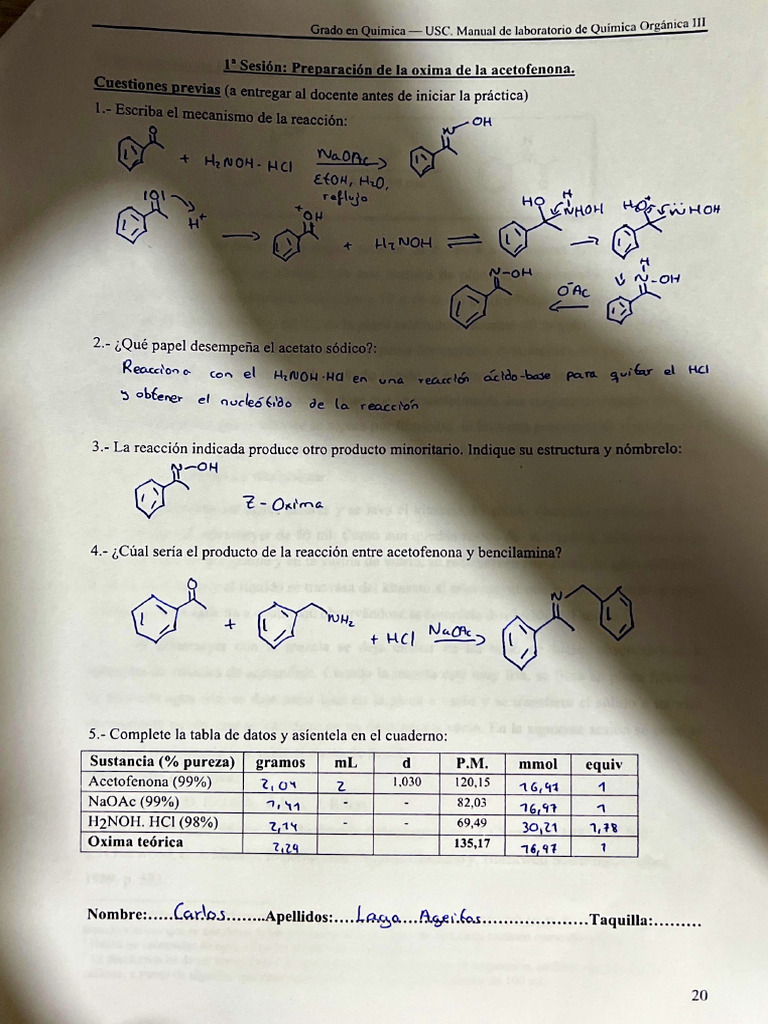 Grado en Química — USC. Manual de laboratorio de Química Orgánica III
1ª Sesión: Preparación de la oxima de la acetofenona.
Cuestiones previas (a entregar al docente antes de iniciar la práctica)
1.- Escriba el mecanismo de la reacción:
O
+ H₂NOH·HCl
NaOAc
EtOH, H₂O,
reflujo
N-OH
IOI
H⁺
+OH
+ H₂NOH
HO H
NHOH
H₂O⁺
NHOH
N-OH
O⁻Ac
H
N-OH
2.- ¿Qué papel desempeña el acetato sódico?:
Reacciona con el H₂NOH·HCl en una reacción ácido-base para quitar el HCl
y obtener el nucleótido de la reacción
3.- La reacción indicada produce otro producto minoritario. Indique su estructura y nómbrelo:
N-OH
Z-Oxima
4.- ¿Cúal sería el producto de la reacción entre acetofenona y bencilamina?
O
+
NH₂
+ HCl
NaOAc
N
5.- Complete la tabla de datos y asíentela en el cuaderno:
Sustancia (% pureza) gramos mL d P.M. mmol equiv
Acetofenona (99%) 2,04 2 1,030 120,15 16,97 1
NaOAc (99%) 1,41 - - 82,03 16,97 1
H2NOH. HCl (98%) 2,14 - - 69,49 30,21 1,78
Oxima teórica 2,29 135,17 16,97 1
Nombre:.....Carlos........Apellidos:....Laga...Ageitos....................Taquilla:.........
20